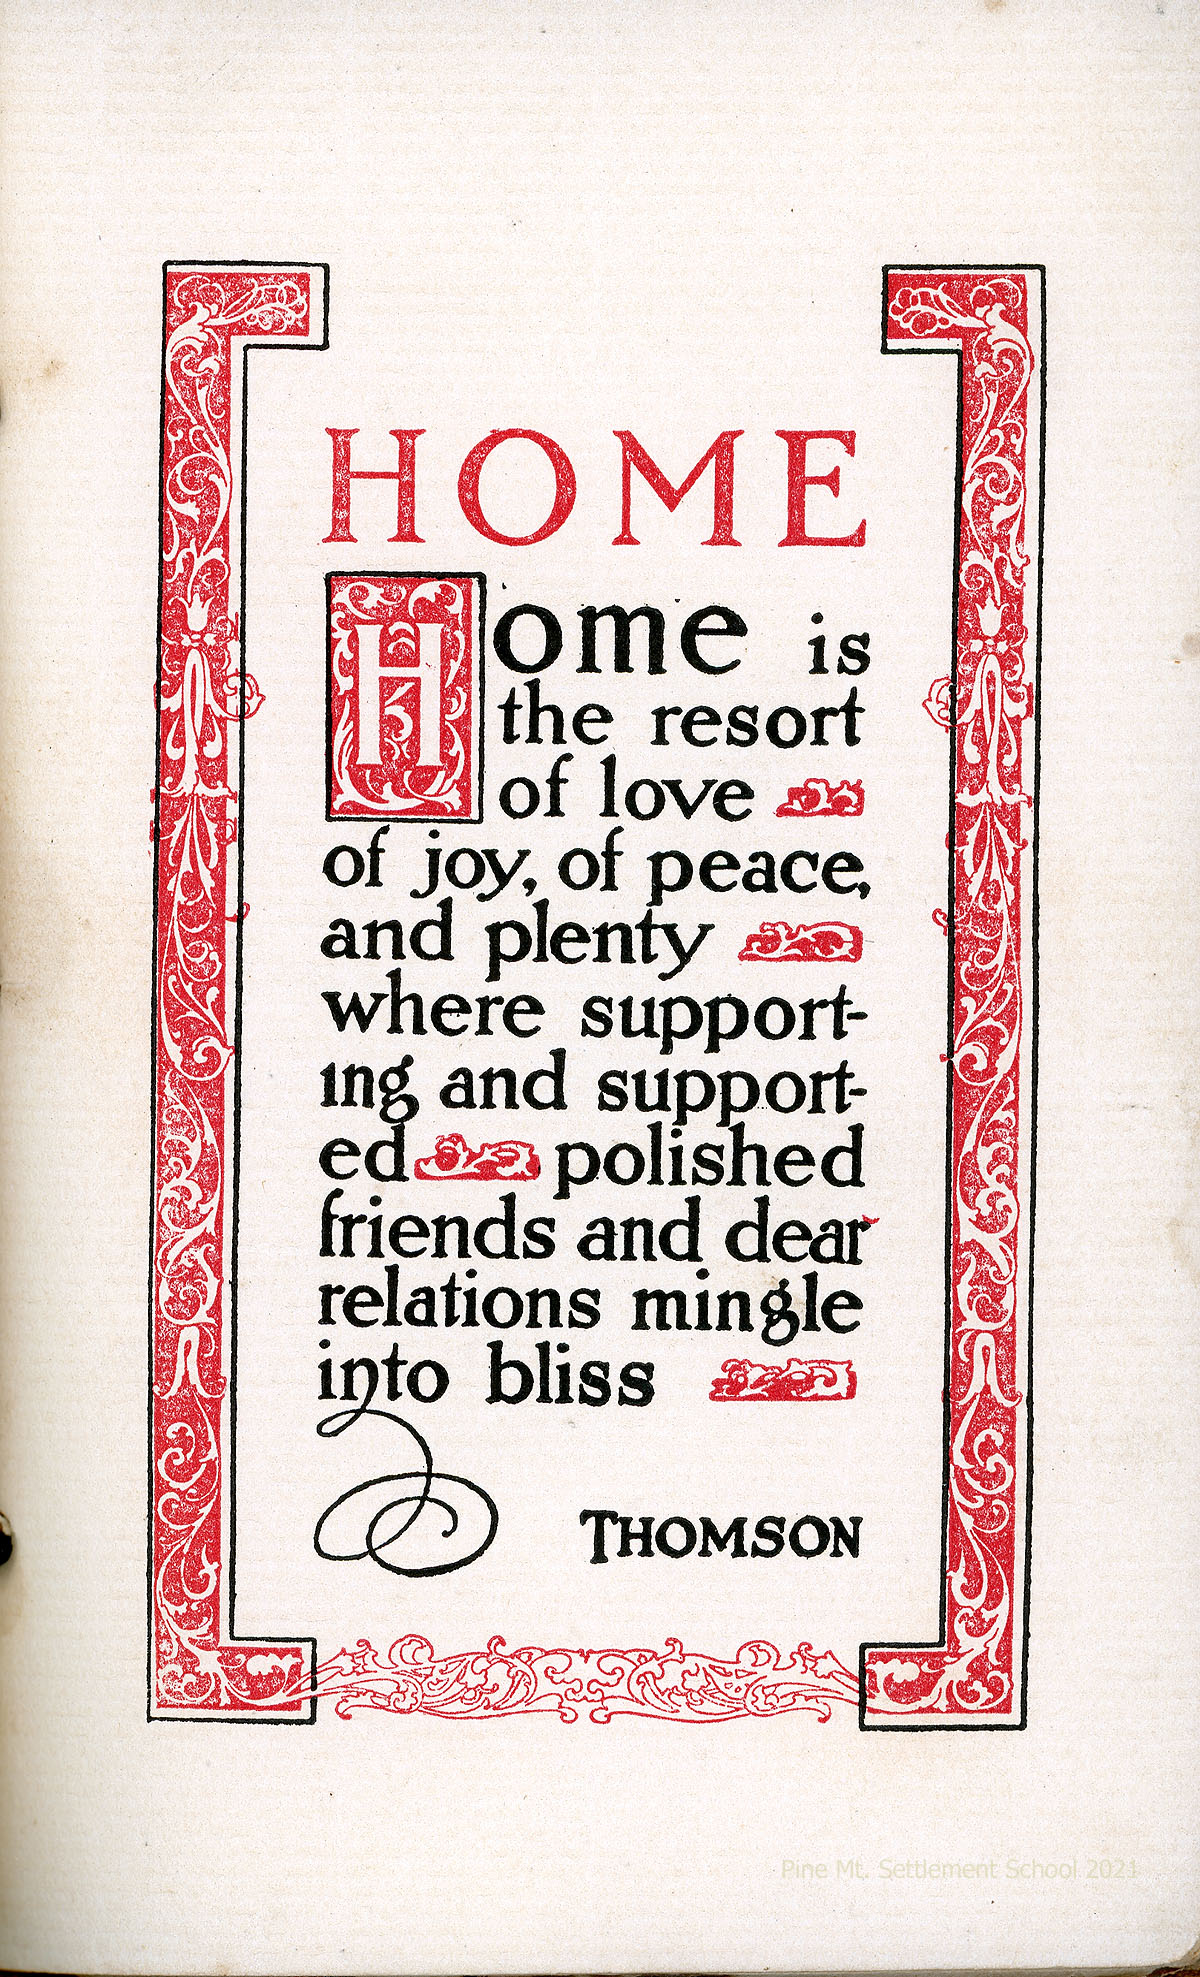 HOME
Home is
the resort
of love
of joy, of peace,
and plenty
where support-
ing and support-
ed polished
friends and dear
relations mingle
into bliss
THOMSON
Pine Mt. Settlement School 2021